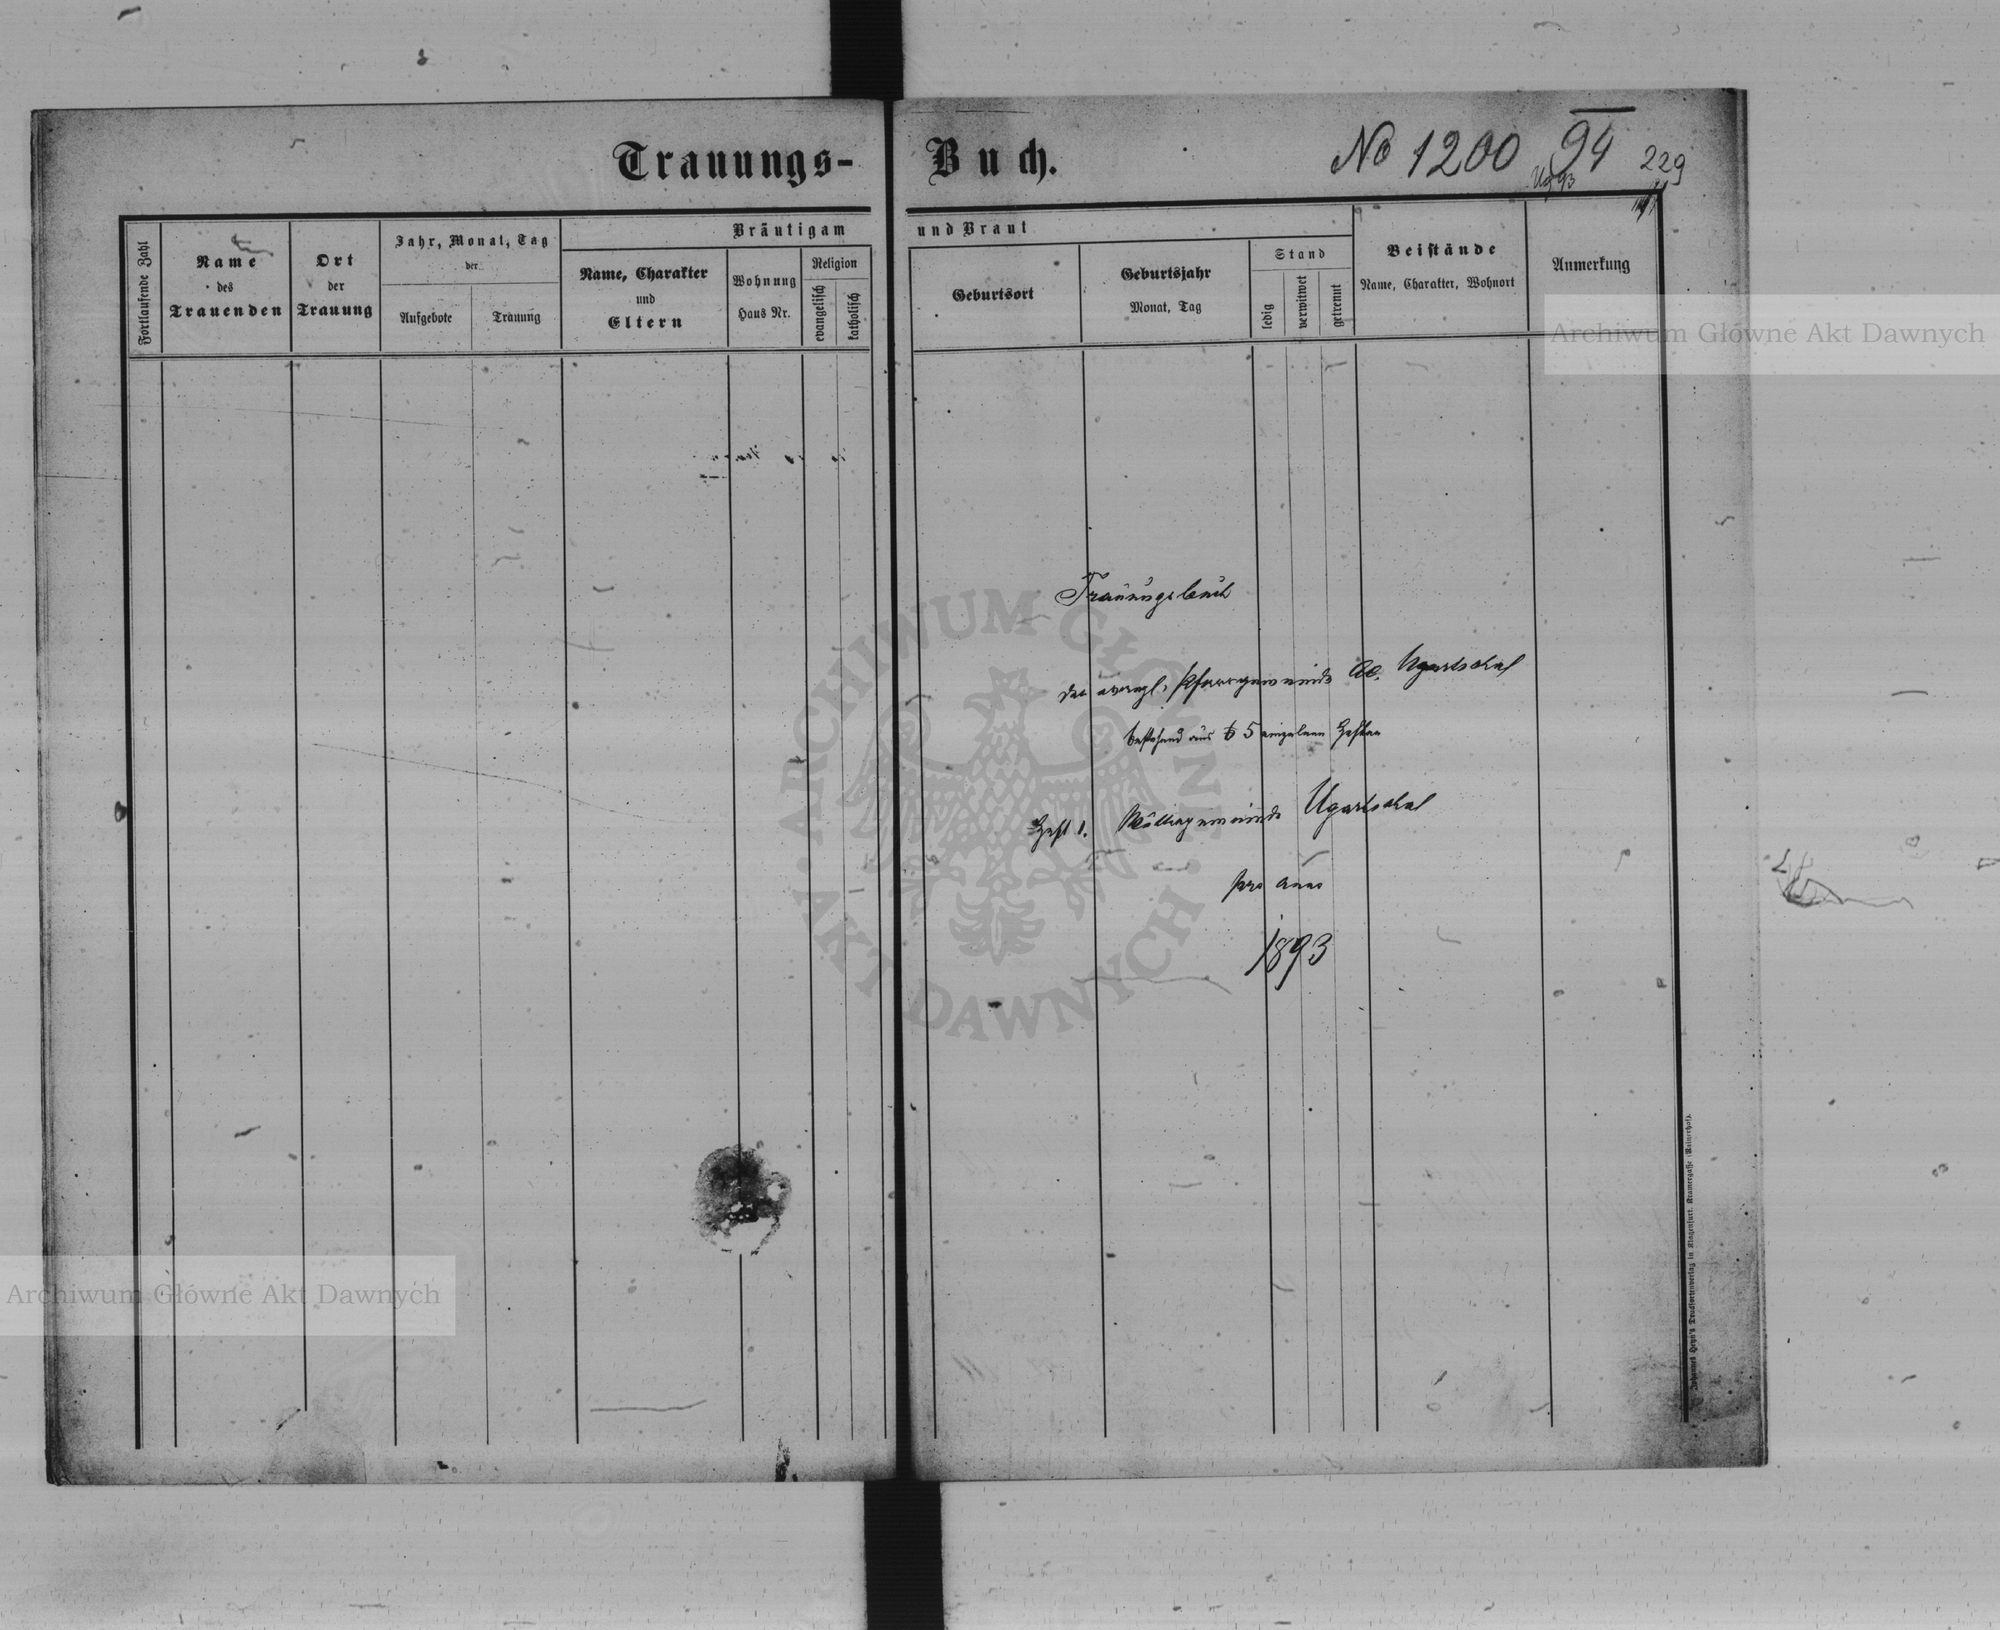 Trauungs-Buch.
No 1200 94
229
Fortlaufende Zahl
Name
des
Trauenden
Ort
der
Trauung
Jahr, Monat, Tag
der
Aufgebote
Trauung
Bräutigam und Braut
Name, Charakter
und
Eltern
Wohnung
Haus Nr.
Religion
evangelisch
katholisch
Geburtsort
Geburtsjahr
Monat, Tag
Stand
ledig
verwitwet
getrennt
Beistände
Name, Charakter, Wohnort
Anmerkung
Archiwum Główne Akt Dawnych
Trauungsbuch
der evangl. Pfarrgemeinde Ugartsthal
bestehend aus 5 einzelnen Heften
Heft 1. Muttergemeinde Ugartsthal
pro anno
1893
ARCHIWUM GŁÓWNE
AKT DAWNYCH
Archiwum Główne Akt Dawnych
Johannes Heyn's Drucksortenverlag in Klagenfurt, Kramergasse (Rainerhof).